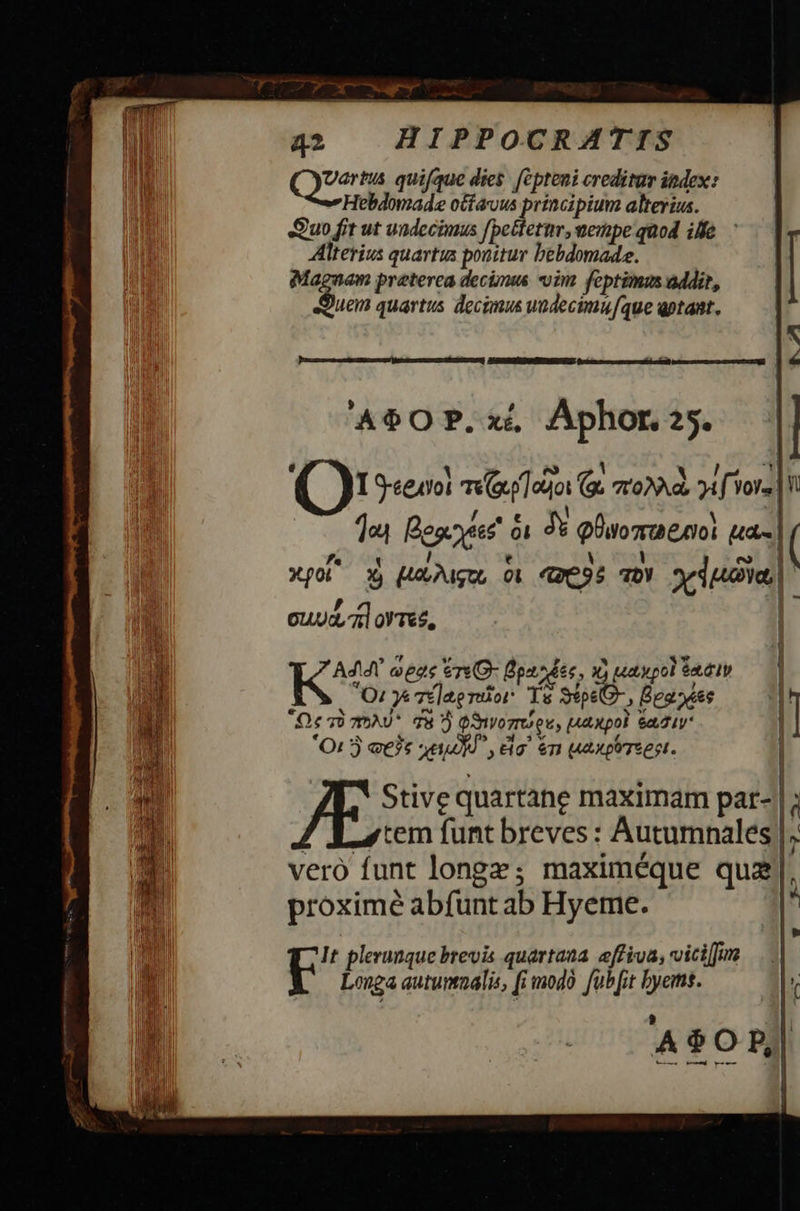 42 HIPPOCRATIS
QVartus quiſque dies ſepteni creditur index:
Hebdomade octavus principium alterius.
Quo fit ut undecimus ſpectetur, nempe quod ille
Alterius quartus ponitur hebdomade.
Magnam preterea decimus vim ſeptimus addit,
Quem quartus decimus undecimuſque aptant.
ἈΦΟΡ. κέ. Aphor. 25.
ΟΙ θερινοὶ τεταρταῖοι ὡς πολλὰ γίνον-
ται βραχέες· οἱ δὲ φθινοπωρινοὶ μα-
κροί· καὶ μάλιϛα οἱ πρὸς τὸν χειμῶνα
συνάπτοντες,
ΚΑδδ' ὥρας ἔτεος βραχέες, καὶ μακροὶ ἔασιν
Οἵ γε τεταρταῖοι· Τοῦ θέρεος, βραχέες
Ὡς τὸ πολύ· τοῦ δὲ φθινοπώρου, μακροὶ ἔασιν·
Οἱ δὲ πρὸς χειμῶν', εἰσ' ἔτι μακρότεροι.
ÆStive quartane maximam par-
tem ſunt breves: Autumnales
verò ſunt longæ; maximéque quæ
proximè abſunt ab Hyeme.
FIt plerunque brevis quartana æſtiva, viciſſim
Longa autumnalis, ſi modò ſubſit hyems.
ἈΦΟΡ,